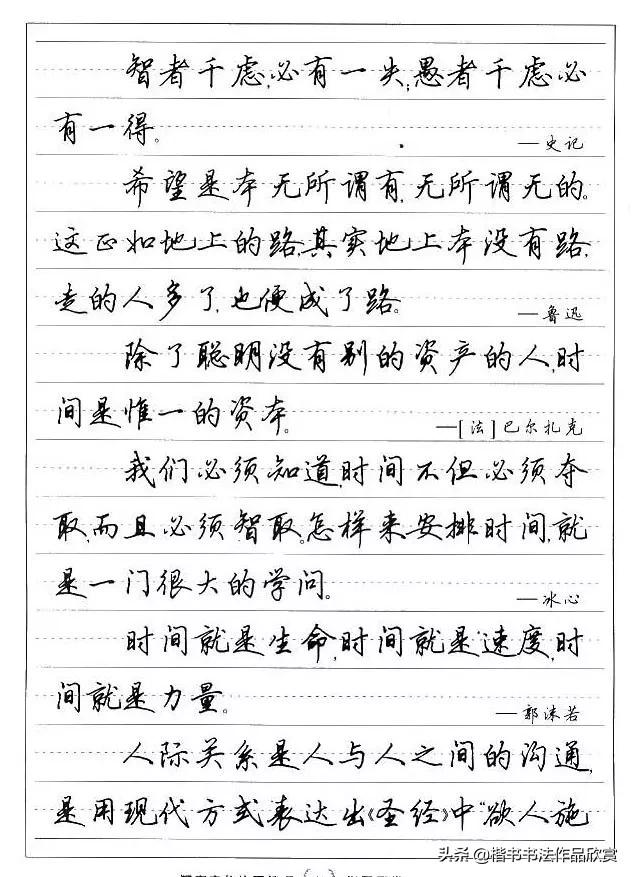 智者千虑,必有一失;愚者千虑必
有一得。
—史记
希望是本无所谓有,无所谓无的。
这正如地上的路,其实地上本没有路,
走的人多了,也便成了路。
—鲁迅
除了聪明没有别的资产的人,时
间是惟一的资本。
—[法]巴尔扎克
我们必须知道,时间不但必须夺
取,而且必须智取。怎样来安排时间,就
是一门很大的学问。
—冰心
时间就是生命,时间就是速度,时
间就是力量。
—郭沫若
人际关系是人与人之间的沟通,
是用现代方式表达出《圣经》中“欲人施
头条@楷书书法作品欣赏